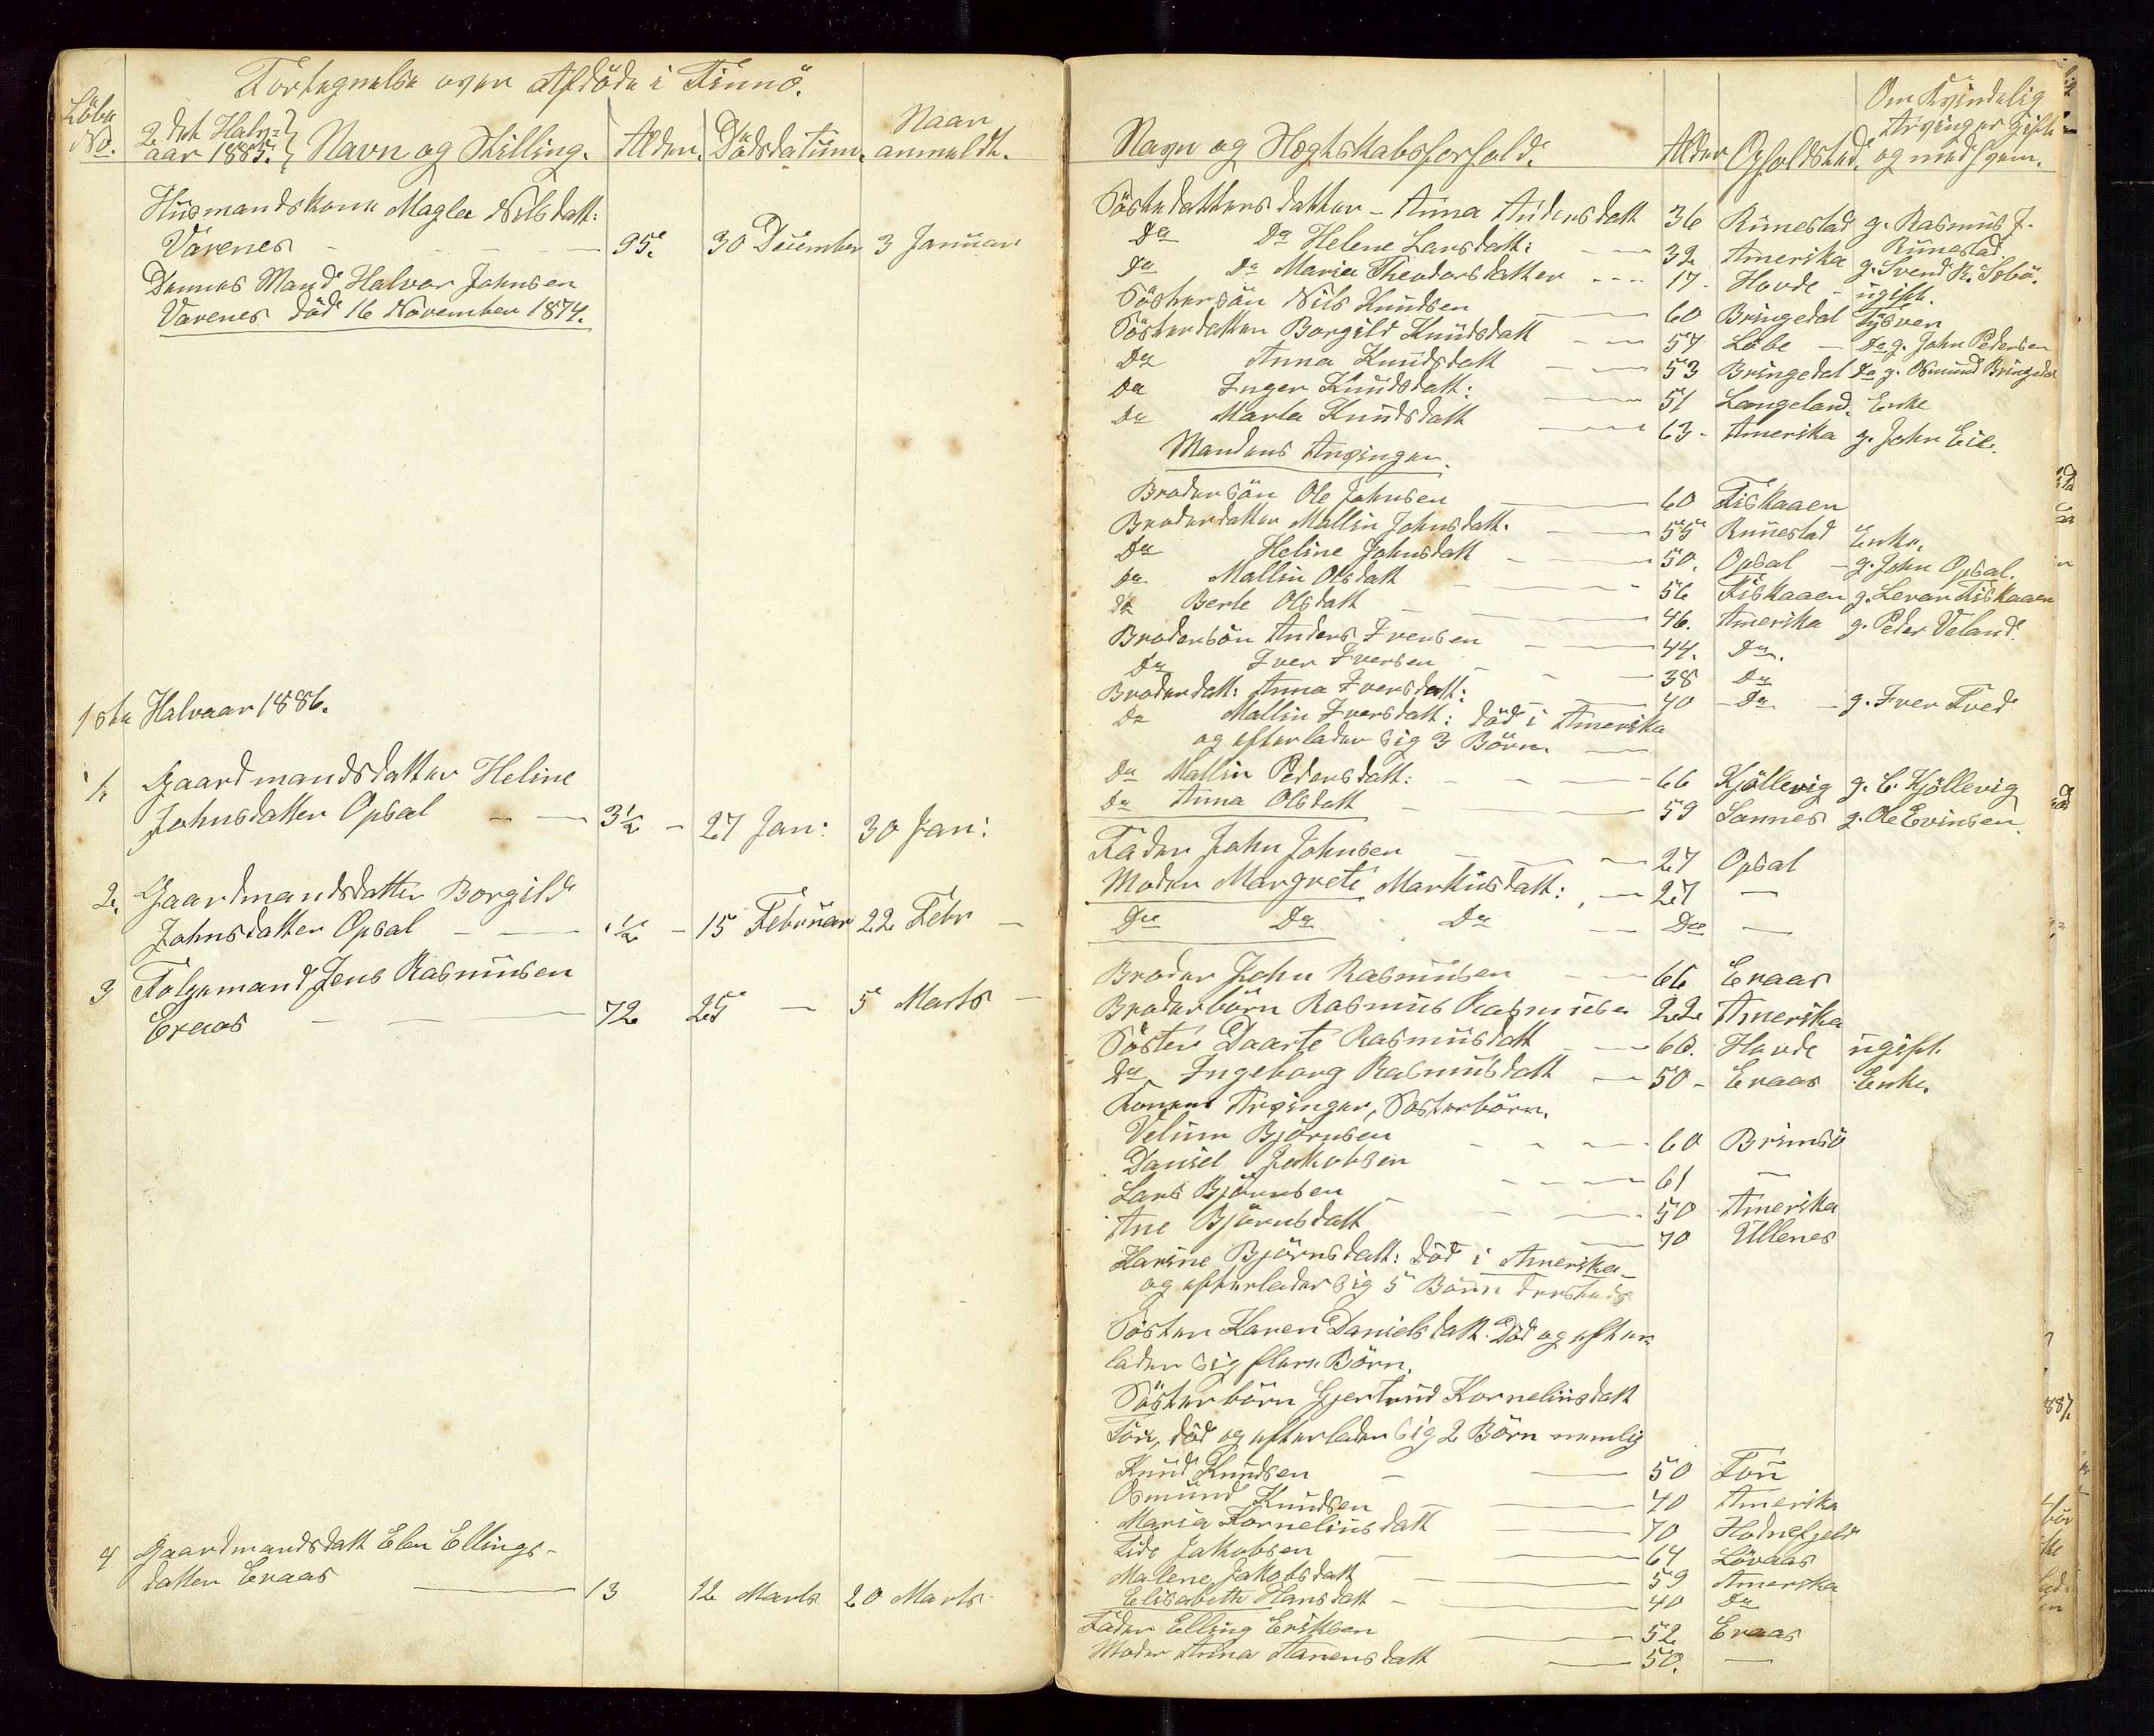 Fortegnelse over Afdöde i Finnö.
Löbe No.
2det Halv-
aar 1885.
Navn og Stilling.
Alder.
Dödsdatum.
Naar
anmeldt.
Husmandskone Magla Nilsdatt:
Varenes - 95. 30 December 3 Januar
Dennes Mand Halvor Johnsen
Varenes död 16 November 1874.
1ste Halvaar 1886.
1. Gaardmandsdatter Heline
Johnsdatter Opsal - 3½ - 27 Jan: 30 Jan:
2. Gaardmandsdatter Borgild
Johnsdatter Opsal - 1½ - 15 Februar 22 Febr -
3 Folgemand Jens Rasmussen
Eraas - 72 25 - 5 Marts -
4 Gaardmandsdatt Elen Ellings-
datter Eraas - 13 12 Marts 20 Marts
Navn og Slegtskabsforhold.
Alder
Opholdsted.
Om Kvindelig
Arvinger gift
og med hvem.
Södsterdatters datter - Anna Andersdatt 36 Runestad g. Rasmus J.
Runestad.
Do Do Helene Larsdatt: 32 Amerika g. Svend R.
Do Do Maria Theodorsdatter - 17 - Hovde - ugift.
Söstersön Nils Knudsen - 60 Bringedal Tysver
Sösterdatter Borgild Knudsdatt - 57 Löbe - Do g. John Pedersen
Do Anna Knudsdatt - 53 Bringedal Do g. Osmund Bringedal
Do Inger Knudsdatt: - 51 Langeland. Enke
Do Marta Knudsdatt - 63 - Amerika g. John Eie.
Mandens Arvinger.
Brodersön Ole Johnsen - 60 Fiskaaen
Broderdatter Mallin Johnsdatt. - 55 Runestad Enke.
Do Heline Johnsdatt - 50. Opsal - g. John Opsal.
Do Mallin Olsdatt - 56 Fiskaaen g. Levar Fiskaaen
Do Berte Olsdatt - 46. Amerika g. Peder Veland.
Brodersön Anders Iversen - 44. Do.
Do Iver Iversen - 38 Do
Broderdatt: Anna Iversdatt: - 40 - Do - g. Iver Tved
Do Mallin Iversdatt: död i Amerika
og efterlader sig 3 Börn. -
Do Mallin Pedersdatt: - 66 Kjöllevig g. C. Kjöllevig
Do Anna Olsdatt - 59 Sannes g. Ole Evinsen
Fader John Johnsen - 27 Opsal
Moder Margrete Markusdatt: - 27 -
Do Do Do - Do -
Broder John Rasmussen - 66 Eraas
Broderbörn Rasmus Rasmussen 22 Amerika
Söster Daarte Rasmusdatt - 60. Hovde ugift.
Do Ingeborg Rasmusdatt - 50 - Eraas Enke.
Konens Arvinger, Sösterbörn.
Velum Björnsen - 60 Brimsö
Daniel Jakobsen - 61 -
Lars Björnsen - 50 Amerika
Ane Björnsdatt - 70 Ullenes
Karine Björnsdatt: död i Amerika
og efterlader sig 5 Börn dersteds
Söster Karen Danielsdatt. Död og efter-
lader sig flere Börn.
Sösterbörn Gjertrud Kornelinsdatt
Tou, död og efterlader sig 2 Börn nemlig
Knud Knudsen - 50 Tou
Osmund Knudsen - 40 Amerika
Maria Kornelinsdatt - 70 Hodnefjeld
Lide Jakobsen - 64 Lövaas
Malene Jakobsdatt - 59 Amerika
Elisabeth Hansdatt - 40 Do
Fader Elling Eriksen - 52 Eraas
Moder Anna Hanensdatt - 50. -